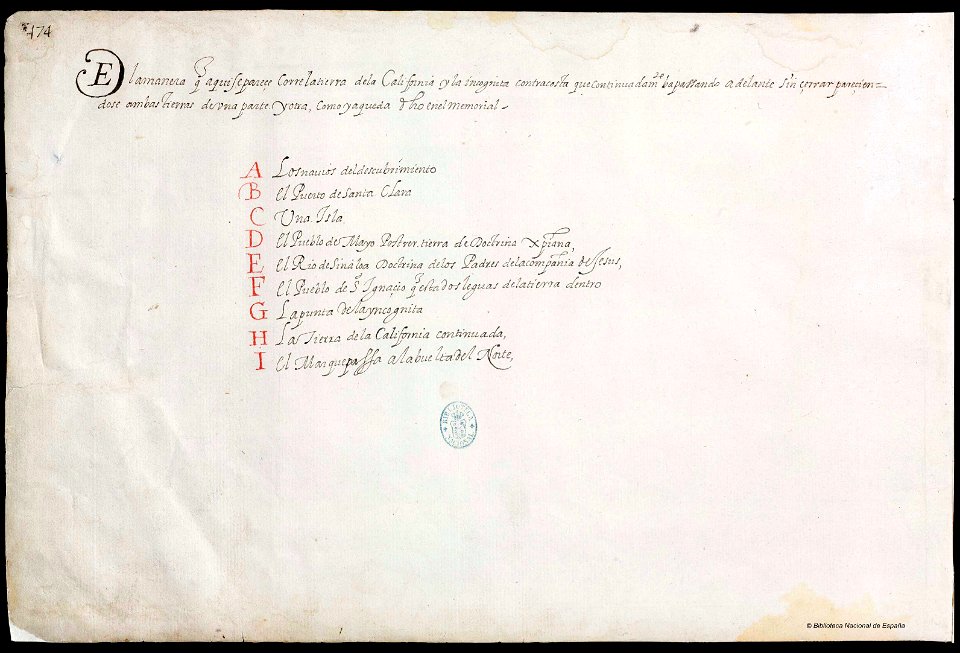 174
E lamanera q̃ aqui separece Corre latierra dela California y la incognita contracosta que continuadamte ba passando adelante sin çerrar pareçien=
dose ambas tierras de vna parte. Y otra, Como ya queda dho en el memorial -
A Los nauios del descubrimiento
B El Puerto de Santa Clara
C Una Isla
D El Pueblo de Mayo Postrer. tierra de Doctrina Xpiana,
E El Rio de Sinaloa Doctrina de los Padres de la compañia de Jesus,
F El Pueblo de S. Ignaçio q̃ esta dos leguas de la tierra dentro
G La punta de la yncognita
H La Tierra de la California continuada,
I El Mar que passa a la buelta del Norte,
BIBLIOTECA
© Biblioteca Nacional de España